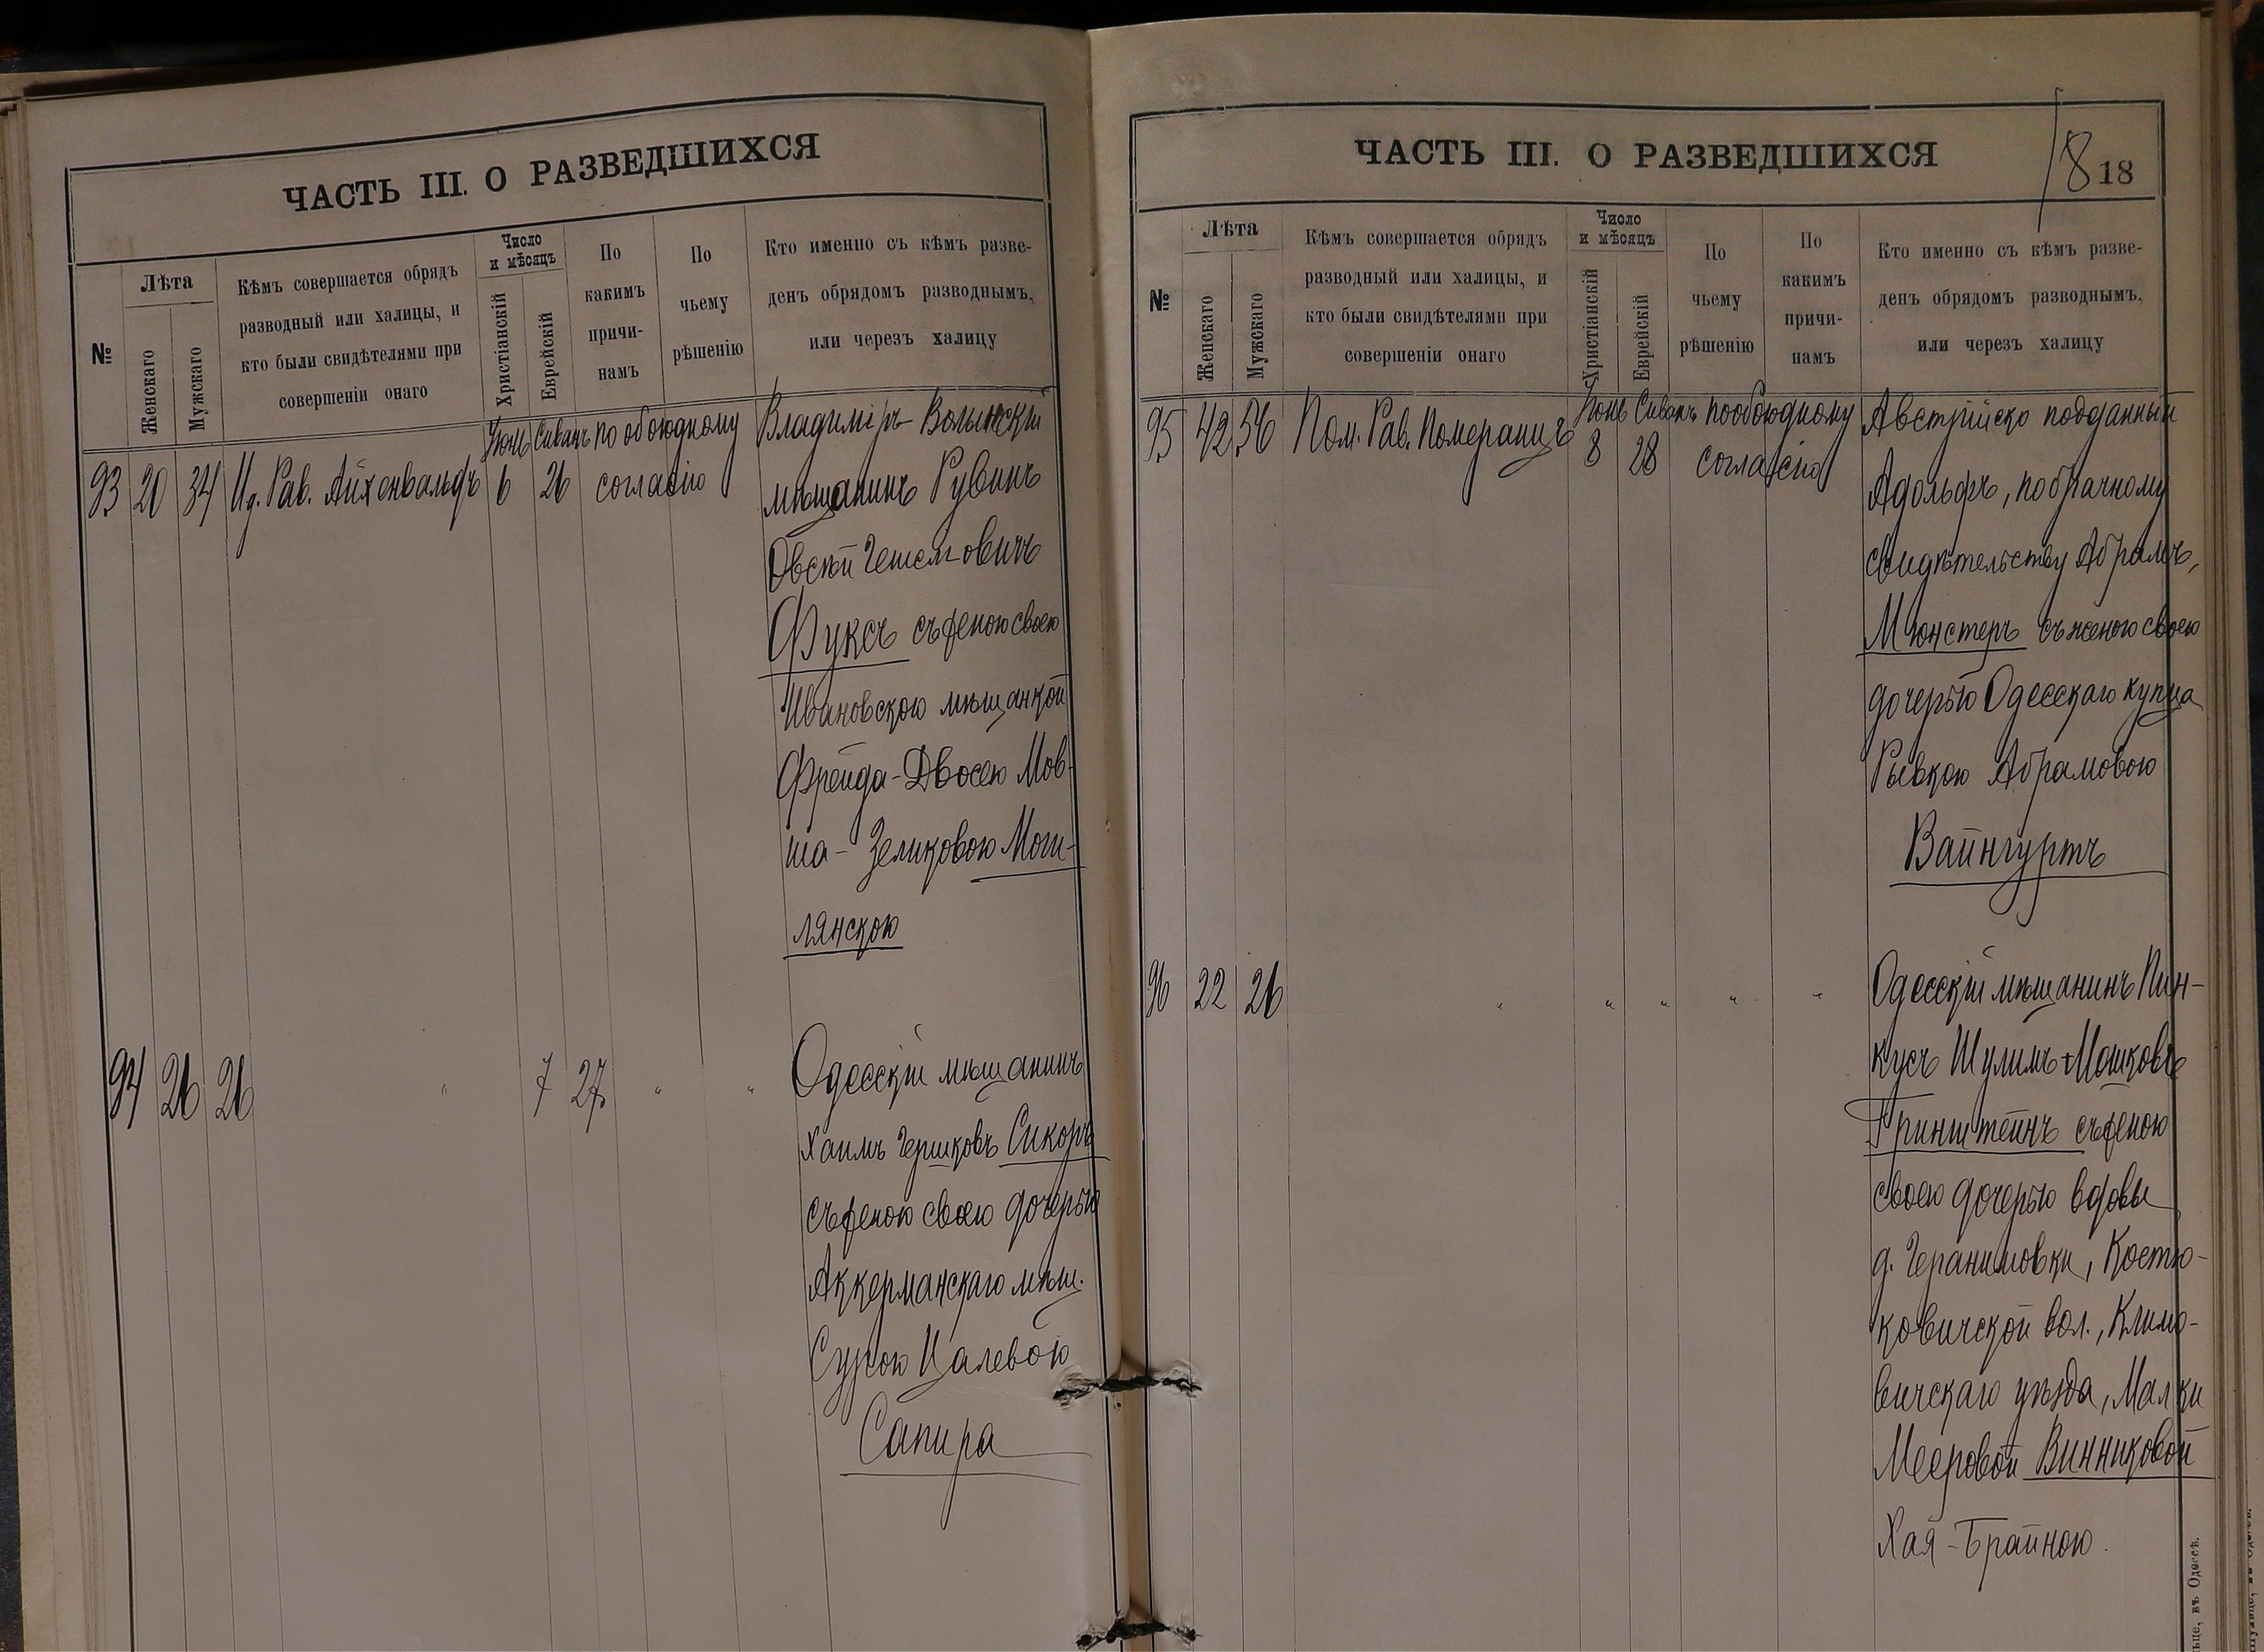 ЧАСТЬ III. О РАЗВЕДШИХСЯ
№
Лѣта
Женскаго
Мужскаго
Кѣмъ совершается обрядъ
разводный или халицы, и
кто были свидѣтелями при
совершеніи онаго
Число
и мѣсяцъ
Христіанскій
Еврейскій
По
какимъ
причи-
намъ
По
чьему
рѣшенію
Кто именно съ кѣмъ разве-
денъ обрядомъ разводнымъ,
или черезъ халицу
Іюнь Сиванъ по обоюдному
93 20 34 Ид. Рав. Айхенвальдъ 6 26 согласію
Владиміръ-Волынскій
мѣщанинъ Рувинъ
Овсѣй
Фуксъ съ женою своею
Ивановскою мѣщанкой
Фрейда-Двосею Мов-
ша-Зеликовою Моги-
лянскою
94 26 26 " 7 27 " "
Одесскій мѣщанинъ
Хаимъ Гершковъ Сикоръ
съ женою своею дочерью
Аккерманскаго мѣщ.
Сурою Цалевою
Сапира
ЧАСТЬ III. О РАЗВЕДШИХСЯ
18 18
№
Лѣта
Женскаго
Мужскаго
Кѣмъ совершается обрядъ
разводный или халицы, и
кто были свидѣтелями при
совершеніи онаго
Число
и мѣсяцъ
Христіанскій
Еврейскій
По
чьему
рѣшенію
По
какимъ
причи-
намъ
Кто именно съ кѣмъ разве-
денъ обрядомъ разводнымъ,
или черезъ халицу
Іюнь Сиванъ по обоюдному
95 42 56 Пом. Рав. Померанцъ 8 28 согласію
Австрійско подданный
Адольфъ, по брачному
свидѣтельству Абрамъ,
Мюнстеръ съ женою своею
дочерью Одесскаго купца
Рывкою Абрамовою
Вайнгуртъ
96 22 26 " " " " "
Одесскій мѣщанинъ Пин-
кусъ Шулимъ Мошковъ
Гринштейнъ съ женою
своею дочерью вдовы
д. Геранимовки, Костю-
ковичской вол., Климо-
вичскаго уѣзда, Малки
Мееровой Винниковой
Хая-Брайною.
въ Одессѣ.